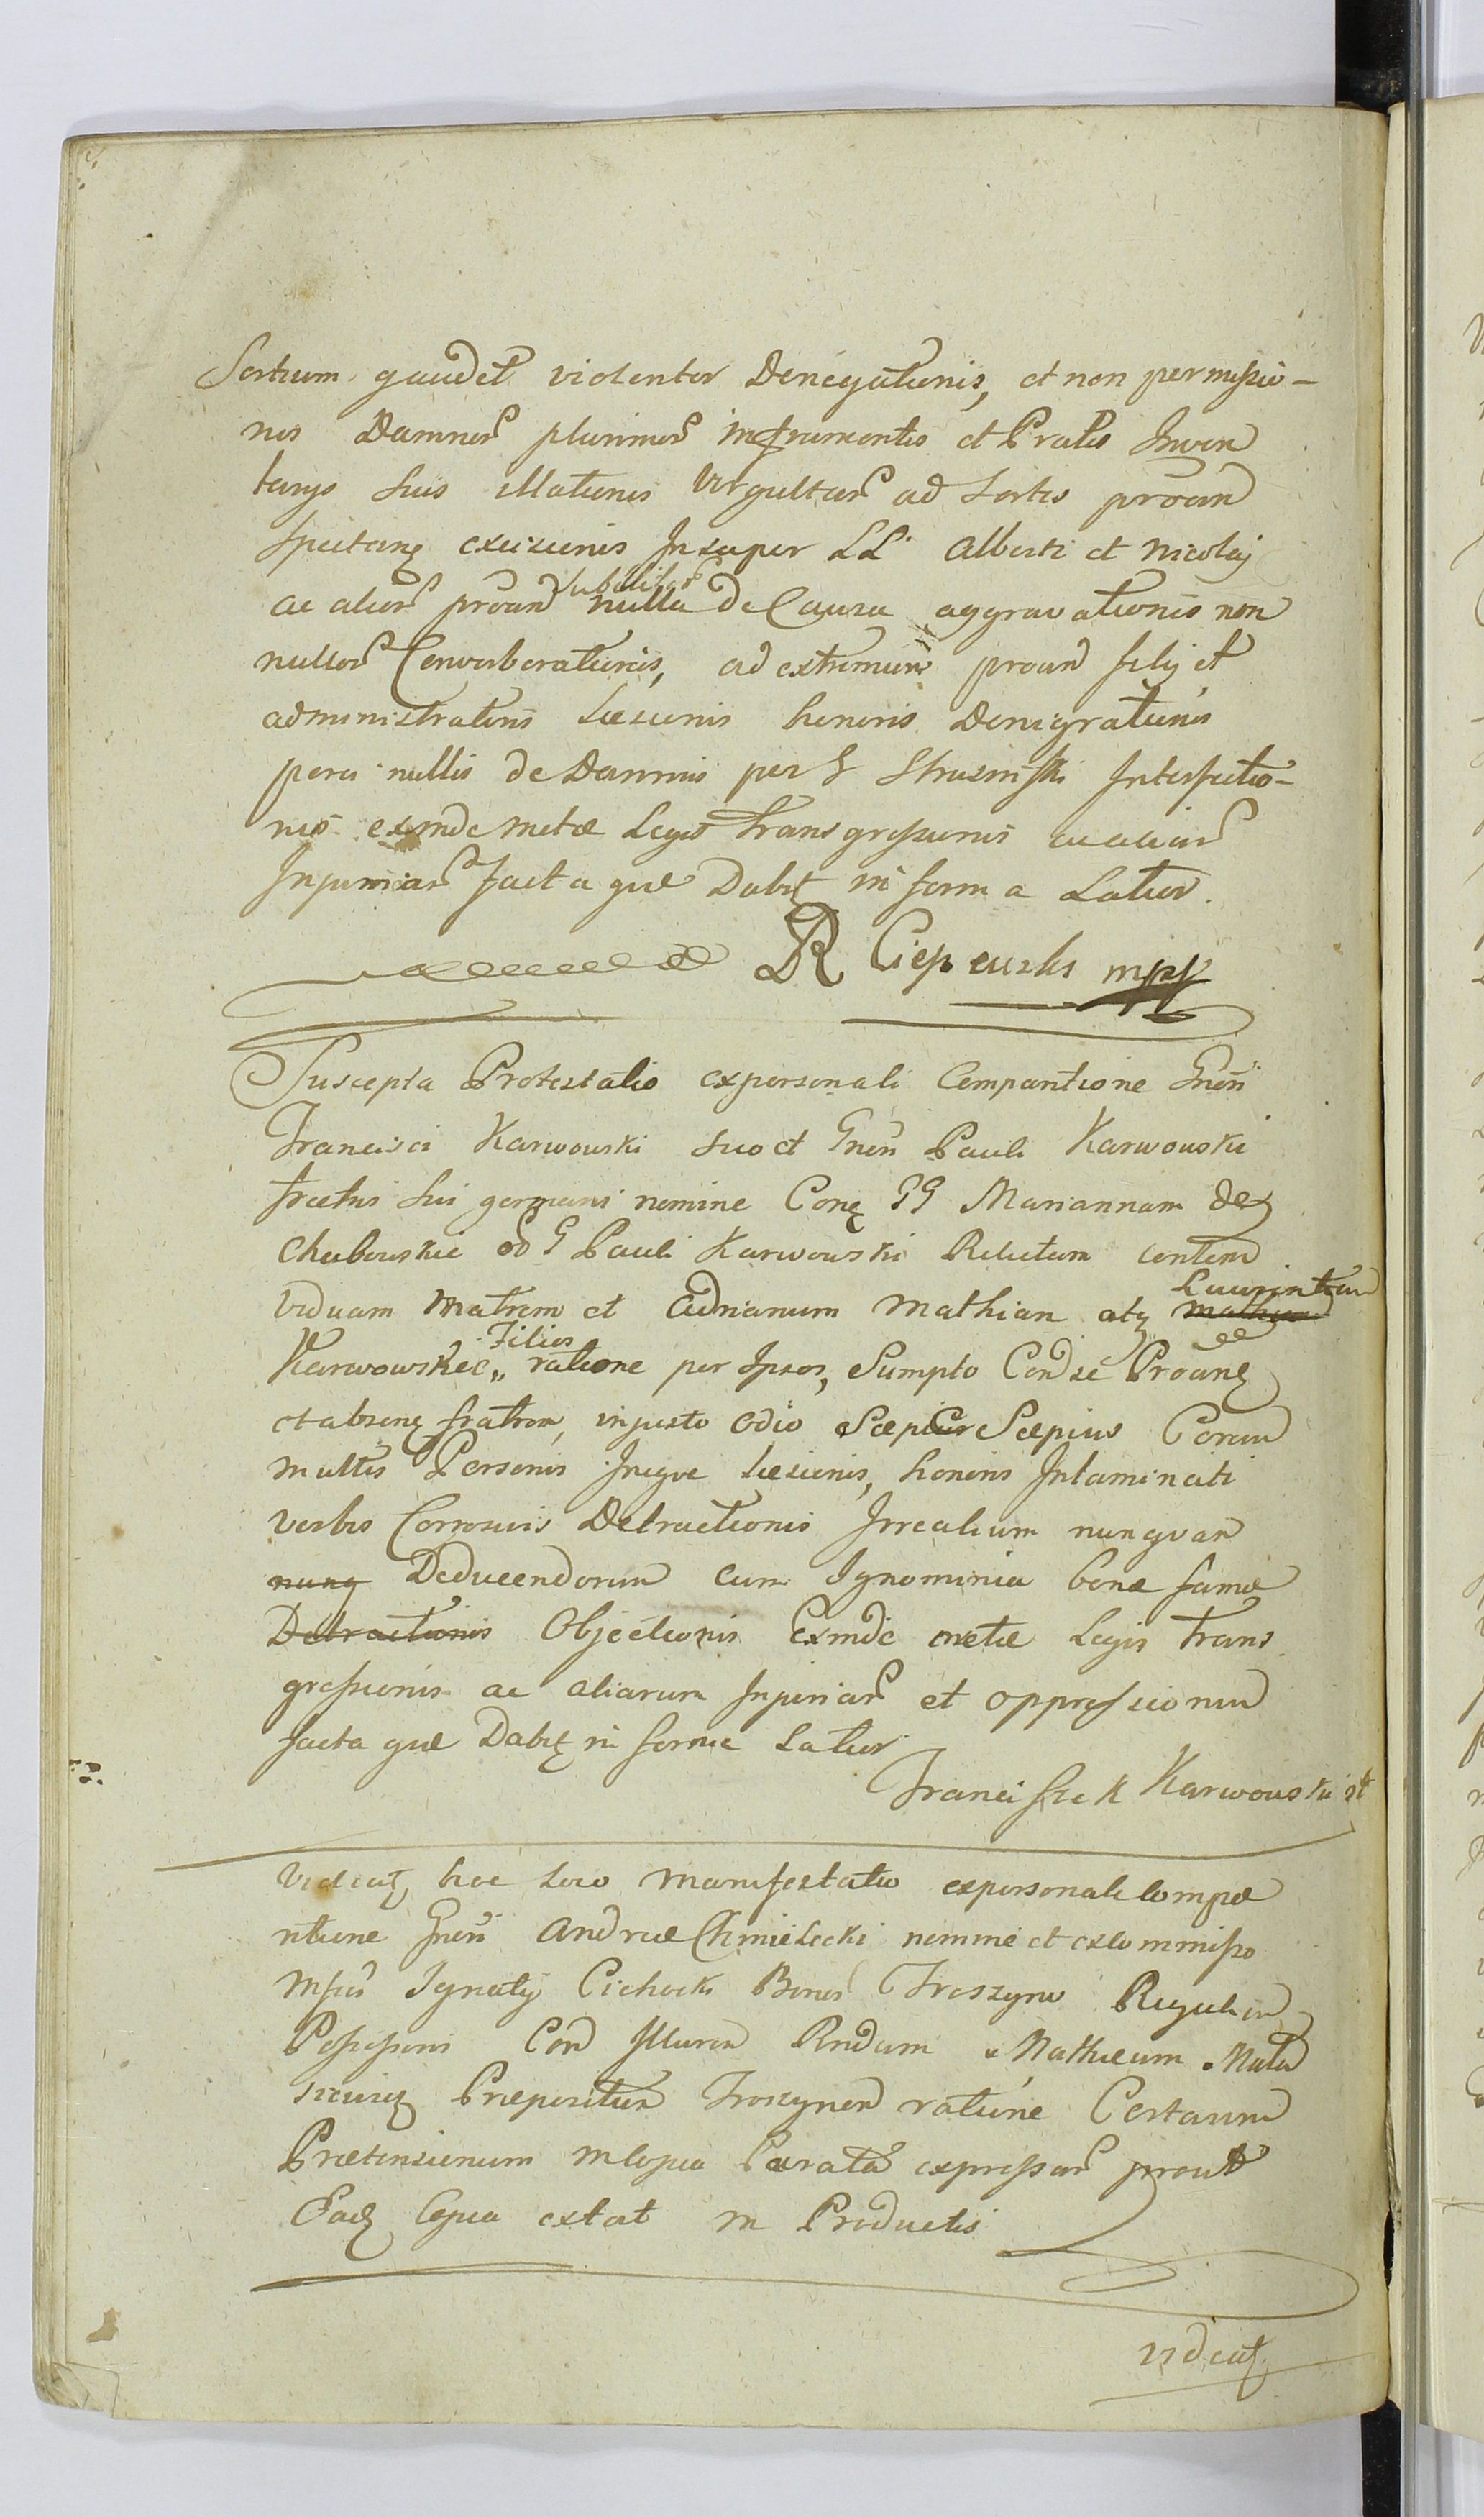 Sortium gaudet violenter Denegationis, et non permissio-
nis Damnor plurimor in frumentis et Pratis Inven
tarys suis illationis Virgultar ad Sortes proan
Spectanę excisionis Insuper LL Alberti et Nicolaj
subditor
ac alior proan nulla de Causa aggravationis non
nullor Converberationis, ad extremum proan filij et
administratoris Læsionis honoris Denigrationis
nullis de Damnis per G Interfectio-
nis exinde metæ Legis Transgressionis ac aliar
Injuriar facta quæ Dabit in forma Latior.
R mpp
Suscepta Protestatio ex personali Comparitione Gnen
Francisci Karwowski suo et Gnen Pauli Karwowski
fratris sui germani nomine Conę GG Mariannam de
Chubowskie od G Pauli Karwowski Relictam
viduam Matrem et Adrianum Mathian atq
Laurentium
Filios
Karwowskie,, ratione per Ipsos, Sumpto Con se Proanę
et absenę fratrem, injusto odio Sæpius Coram
multis Personis Inique Læsionis, honoris Intaminati
verbis Corrosivis Detractionis Irrealium nunquam
nunq Deducendorum cum Ignominia bonæ famæ
Detractionis Objectionis Exinde metæ Legis Trans
gressionis ac aliarum Injuriar et oppressionum
facta quæ Dabit in forma Latior
Franciszek Karwowski
Videat hoc Loco Manifestatio ex personali Compa
ritione Gnen Andreæ Chmielecki nomine et ex Commisso
Mfici Ignatij Cichocki Bonor Troszyno Regalium
Possessoris Con Illurem Rndum Mathæum Mata
Præpositum Troszynen ratione Certarum
Prætensionum in Copia Parata expressar prout
Eadę Copia extat in Productis
Videat